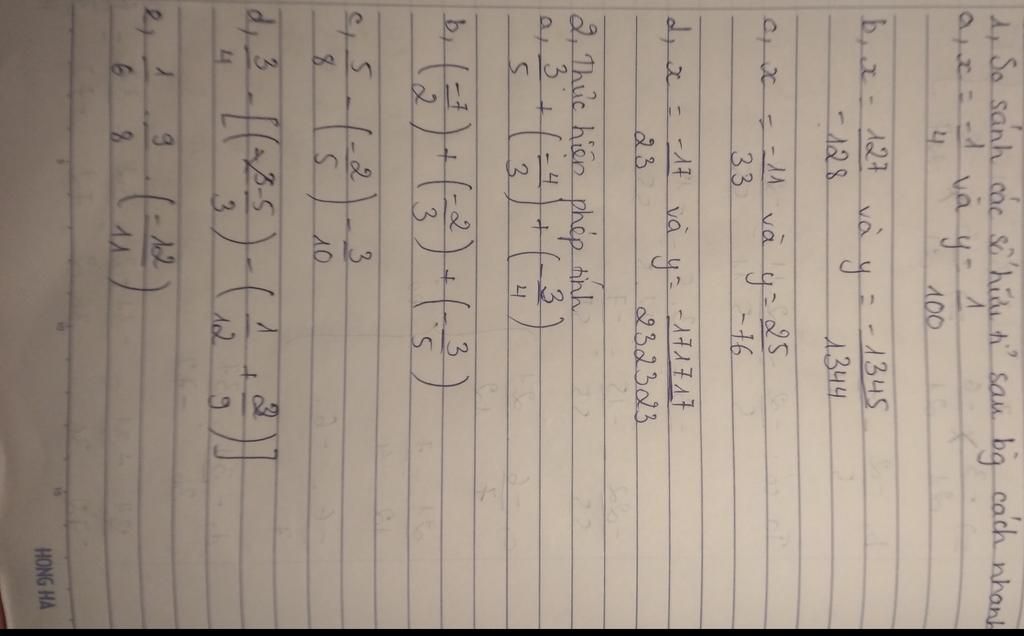 1, So sánh các số hữu tỉ sau bg cách nhanh
a, x = -1/4 và y = 1/100
b, x = 127/-128 và y = -1345/1344
c, x = -11/33 và y = 25/-76
d, x = -17/23 và y = -171717/232323
2, Thực hiện phép tính
a, 3/5 + (-4/3) + (-3/4)
b, (-7/2) + (-2/3) + (-3/5)
c, 5/8 - (-2/5) - 3/10
d, 3/4 - [(-5/3) - (1/12 + 2/9)]
e, 1/6 . 9/8 . (-12/11)
HONG HA